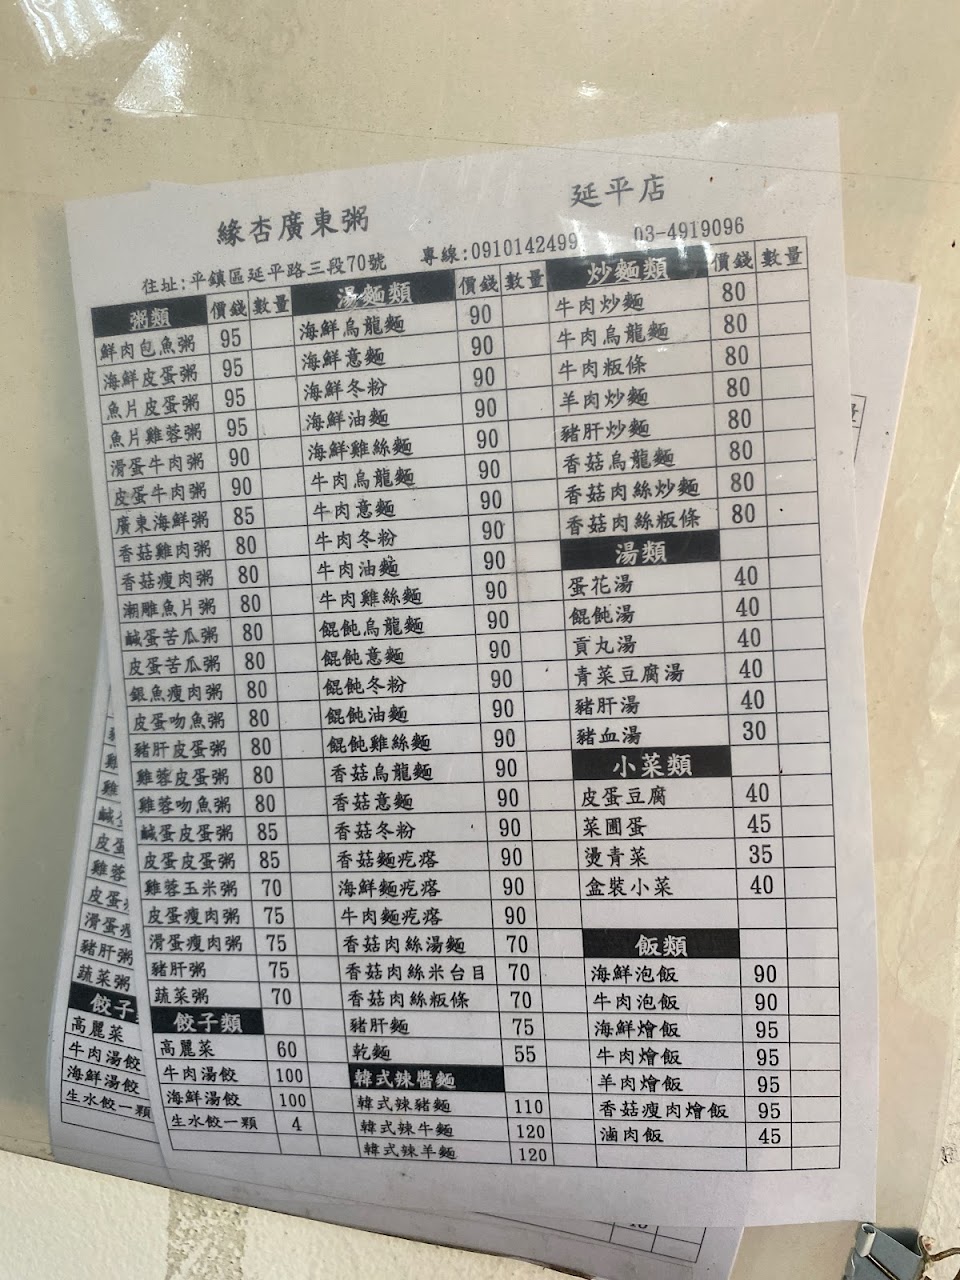 緣杏廣東粥 延平店
住址:平鎮區延平路三段70號 專線:0910142499 03-4919096
粥類 價錢 數量
鮮肉包魚粥 95
海鮮皮蛋粥 95
魚片皮蛋粥 95
魚片雞蓉粥 95
滑蛋牛肉粥 90
皮蛋牛肉粥 90
廣東海鮮粥 85
香菇雞肉粥 80
香菇瘦肉粥 80
潮雕魚片粥 80
鹹蛋苦瓜粥 80
皮蛋苦瓜粥 80
銀魚瘦肉粥 80
皮蛋吻魚粥 80
豬肝皮蛋粥 80
雞蓉皮蛋粥 80
雞蓉吻魚粥 80
鹹蛋皮蛋粥 85
皮蛋皮蛋粥 85
雞蓉玉米粥 70
皮蛋瘦肉粥 75
滑蛋瘦肉粥 75
豬肝粥 75
蔬菜粥 70
餃子類
高麗菜 60
牛肉湯餃 100
海鮮湯餃 100
生水餃一顆 4
湯麵類 價錢 數量
海鮮烏龍麵 90
海鮮意麵 90
海鮮冬粉 90
海鮮油麵 90
海鮮雞絲麵 90
牛肉烏龍麵 90
牛肉意麵 90
牛肉冬粉 90
牛肉油麵 90
牛肉雞絲麵 90
餛飩烏龍麵 90
餛飩意麵 90
餛飩冬粉 90
餛飩油麵 90
餛飩雞絲麵 90
香菇烏龍麵 90
香菇意麵 90
香菇冬粉 90
香菇麵疙瘩 90
海鮮麵疙瘩 90
牛肉麵疙瘩 90
香菇肉絲湯麵 70
香菇肉絲米台目 70
香菇肉絲粄條 70
豬肝麵 75
乾麵 55
韓式辣醬麵
韓式辣豬麵 110
韓式辣牛麵 120
韓式辣羊麵 120
炒麵類 價錢 數量
牛肉炒麵 80
牛肉烏龍麵 80
牛肉粄條 80
羊肉炒麵 80
豬肝炒麵 80
香菇烏龍麵 80
香菇肉絲炒麵 80
香菇肉絲粄條 80
湯類
蛋花湯 40
餛飩湯 40
貢丸湯 40
青菜豆腐湯 40
豬肝湯 40
豬血湯 30
小菜類
皮蛋豆腐 40
菜圃蛋 45
燙青菜 35
盒裝小菜 40
飯類
海鮮泡飯 90
牛肉泡飯 90
海鮮燴飯 95
牛肉燴飯 95
羊肉燴飯 95
香菇瘦肉燴飯 95
滷肉飯 45
豬肝粥
蔬菜粥
餃子
高麗菜
牛肉湯餃
海鮮湯餃
生水餃一顆